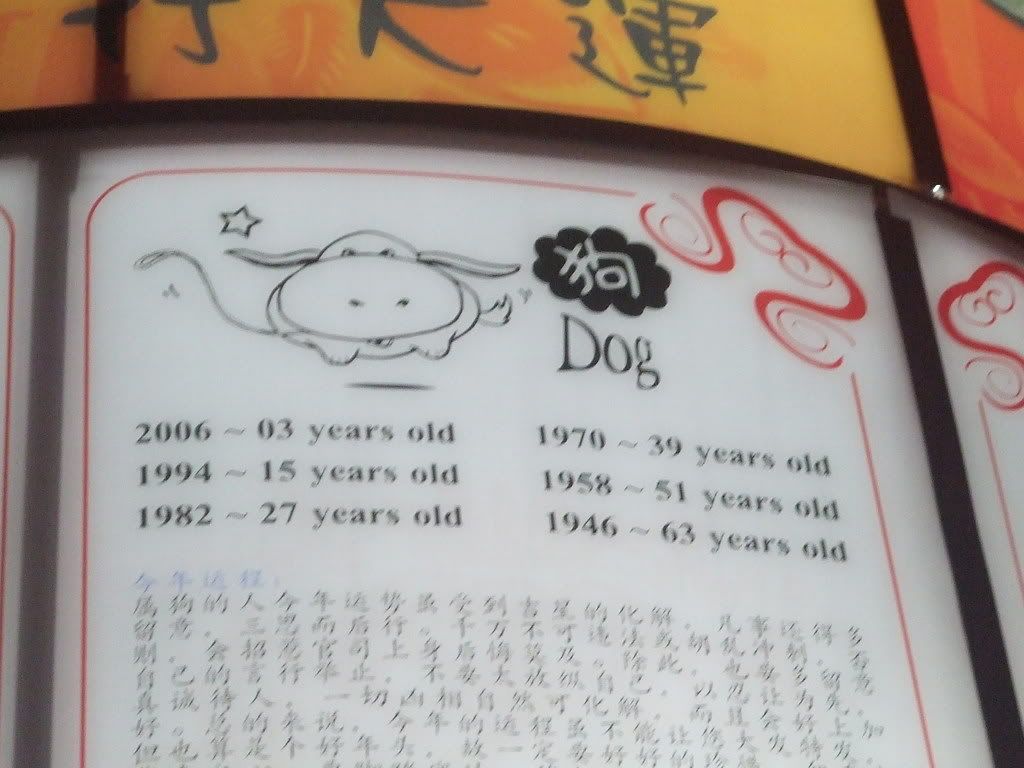 運
狗
Dog
2006 ~ 03 years old
1994 ~ 15 years old
1982 ~ 27 years old
1970 ~ 39 years old
1958 ~ 51 years old
1946 ~ 63 years old
今年运程：
属狗的人今年运势虽受到吉星的化解，凡事还得多
留意，三思而后行。千万不可违法或胡乱冲刺，否
则，会招惹官司上身后悔莫及。除此，也要多留意
自己的言行举止，不要太放纵自己，以忍让为先，
真诚待人，一切凶相自然可化解，而且会好上加
好。总的来说，今年的运程虽不能让您大发特发，
但也算是个好年头，故一定要好好的